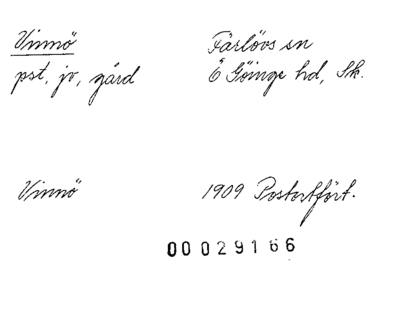 Vinnö Färlövs sn
pst, jv, gård Ö Göinge hd, Sk.
Vinnö 1909 Postortfört.
00029166